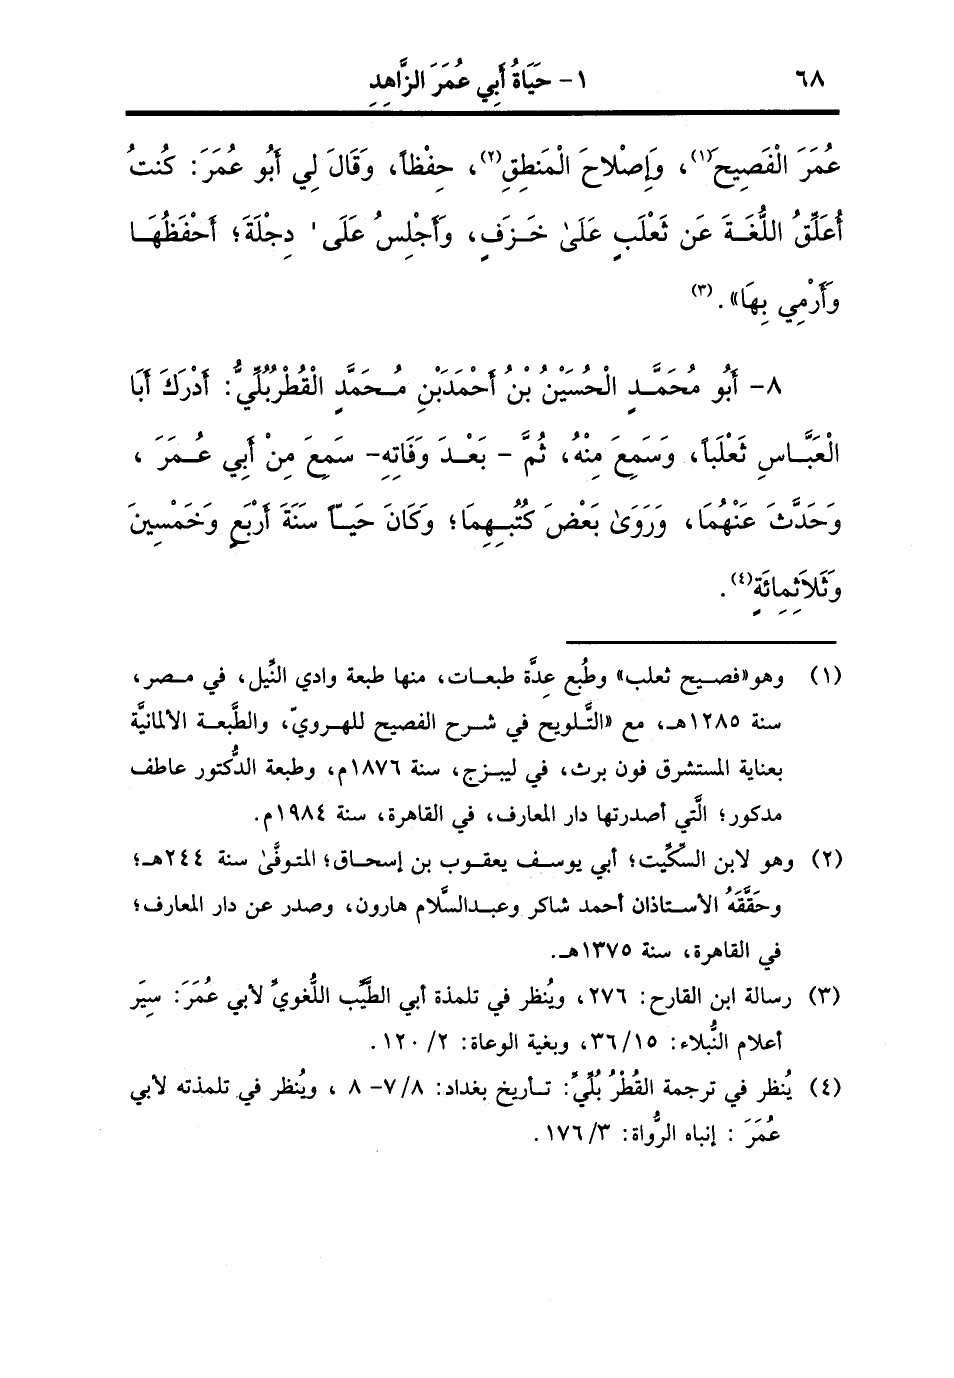 ٦٨
١- حَيَاةُ أَبِي عُمَرَ الزَّاهِدِ
عُمَرَ الْفَصِيحَ(١)، وَإِصْلاحَ الْمَنطِقِ(٢)، حِفْظاً، وَقَالَ لِي أَبُو عُمَرَ: كُنتُ
أُعَلِّقُ اللُّغَةَ عَن ثَعْلَبٍ عَلَىٰ خَزَفٍ، وَأَجْلِسُ عَلَى ' دِجْلَةَ؛ أَحْفَظُهَا
وَأَرْمِي بِهَا». (٣)
٨- أَبُو مُحَمَّدٍ الْحُسَيْنُ بْنُ أَحْمَدَبْنِ مُحَمَّدٍ الْقُطْرَبُلِّيُّ: أَدْرَكَ أَبَا
الْعَبَّاسِ ثَعْلَباً، وَسَمِعَ مِنْهُ، ثُمَّ - بَعْدَ وَفَاتِهِ- سَمِعَ مِنْ أَبِي عُمَرَ ،
وَحَدَّثَ عَنْهُمَا، وَرَوَىٰ بَعْضَ كُتُبِهِمَا؛ وَكَانَ حَيّاً سَنَةَ أَرْبَعٍ وَخَمْسِينَ
وَثَلاَثِمِائَةٍ(٤).
(١) وهو«فصيح ثعلب» وطُبع عِدَّة طبعات، منها طبعة وادي النِّيل، في مصر،
سنة ١٢٨٥هـ، مع «التَّلويح في شرح الفصيح للهرويّ، والطَّبعة الألمانيَّة
بعناية المستشرق فون برث، في ليبزج، سنة ١٨٧٦م، وطبعة الدُّكتور عاطف
مدكور؛ الَّتي أصدرتها دار المعارف، في القاهرة، سنة ١٩٨٤م.
(٢) وهو لابن السِّكِّيت؛ أبي يوسف يعقوب بن إسحاق؛ المتوفَّىٰ سنة ٢٤٤هـ؛
وحَقَّقَهُ الأستاذان أحمد شاكر وعبدالسَّلام هارون، وصدر عن دار المعارف؛
في القاهرة، سنة ١٣٧٥هـ.
(٣) رسالة ابن القارح: ٢٧٦، ويُنظر في تلمذة أبي الطَّيِّب اللُّغويِّ لأبي عُمَرَ: سِيَر
أعلام النُّبلاء: ٣٦/١٥، وبغية الوعاة: ١٢٠/٢.
(٤) يُنظر في ترجمة القُطْرُبُلِّيِّ: تأريخ بغداد: ٧/٨- ٨ ، ويُنظر في تلمذته لأبي
عُمَرَ : إنباه الرُّواة: ١٧٦/٣.